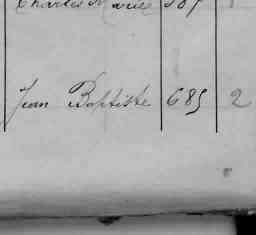 Charles Marie 587
Jean Baptiste 685 2